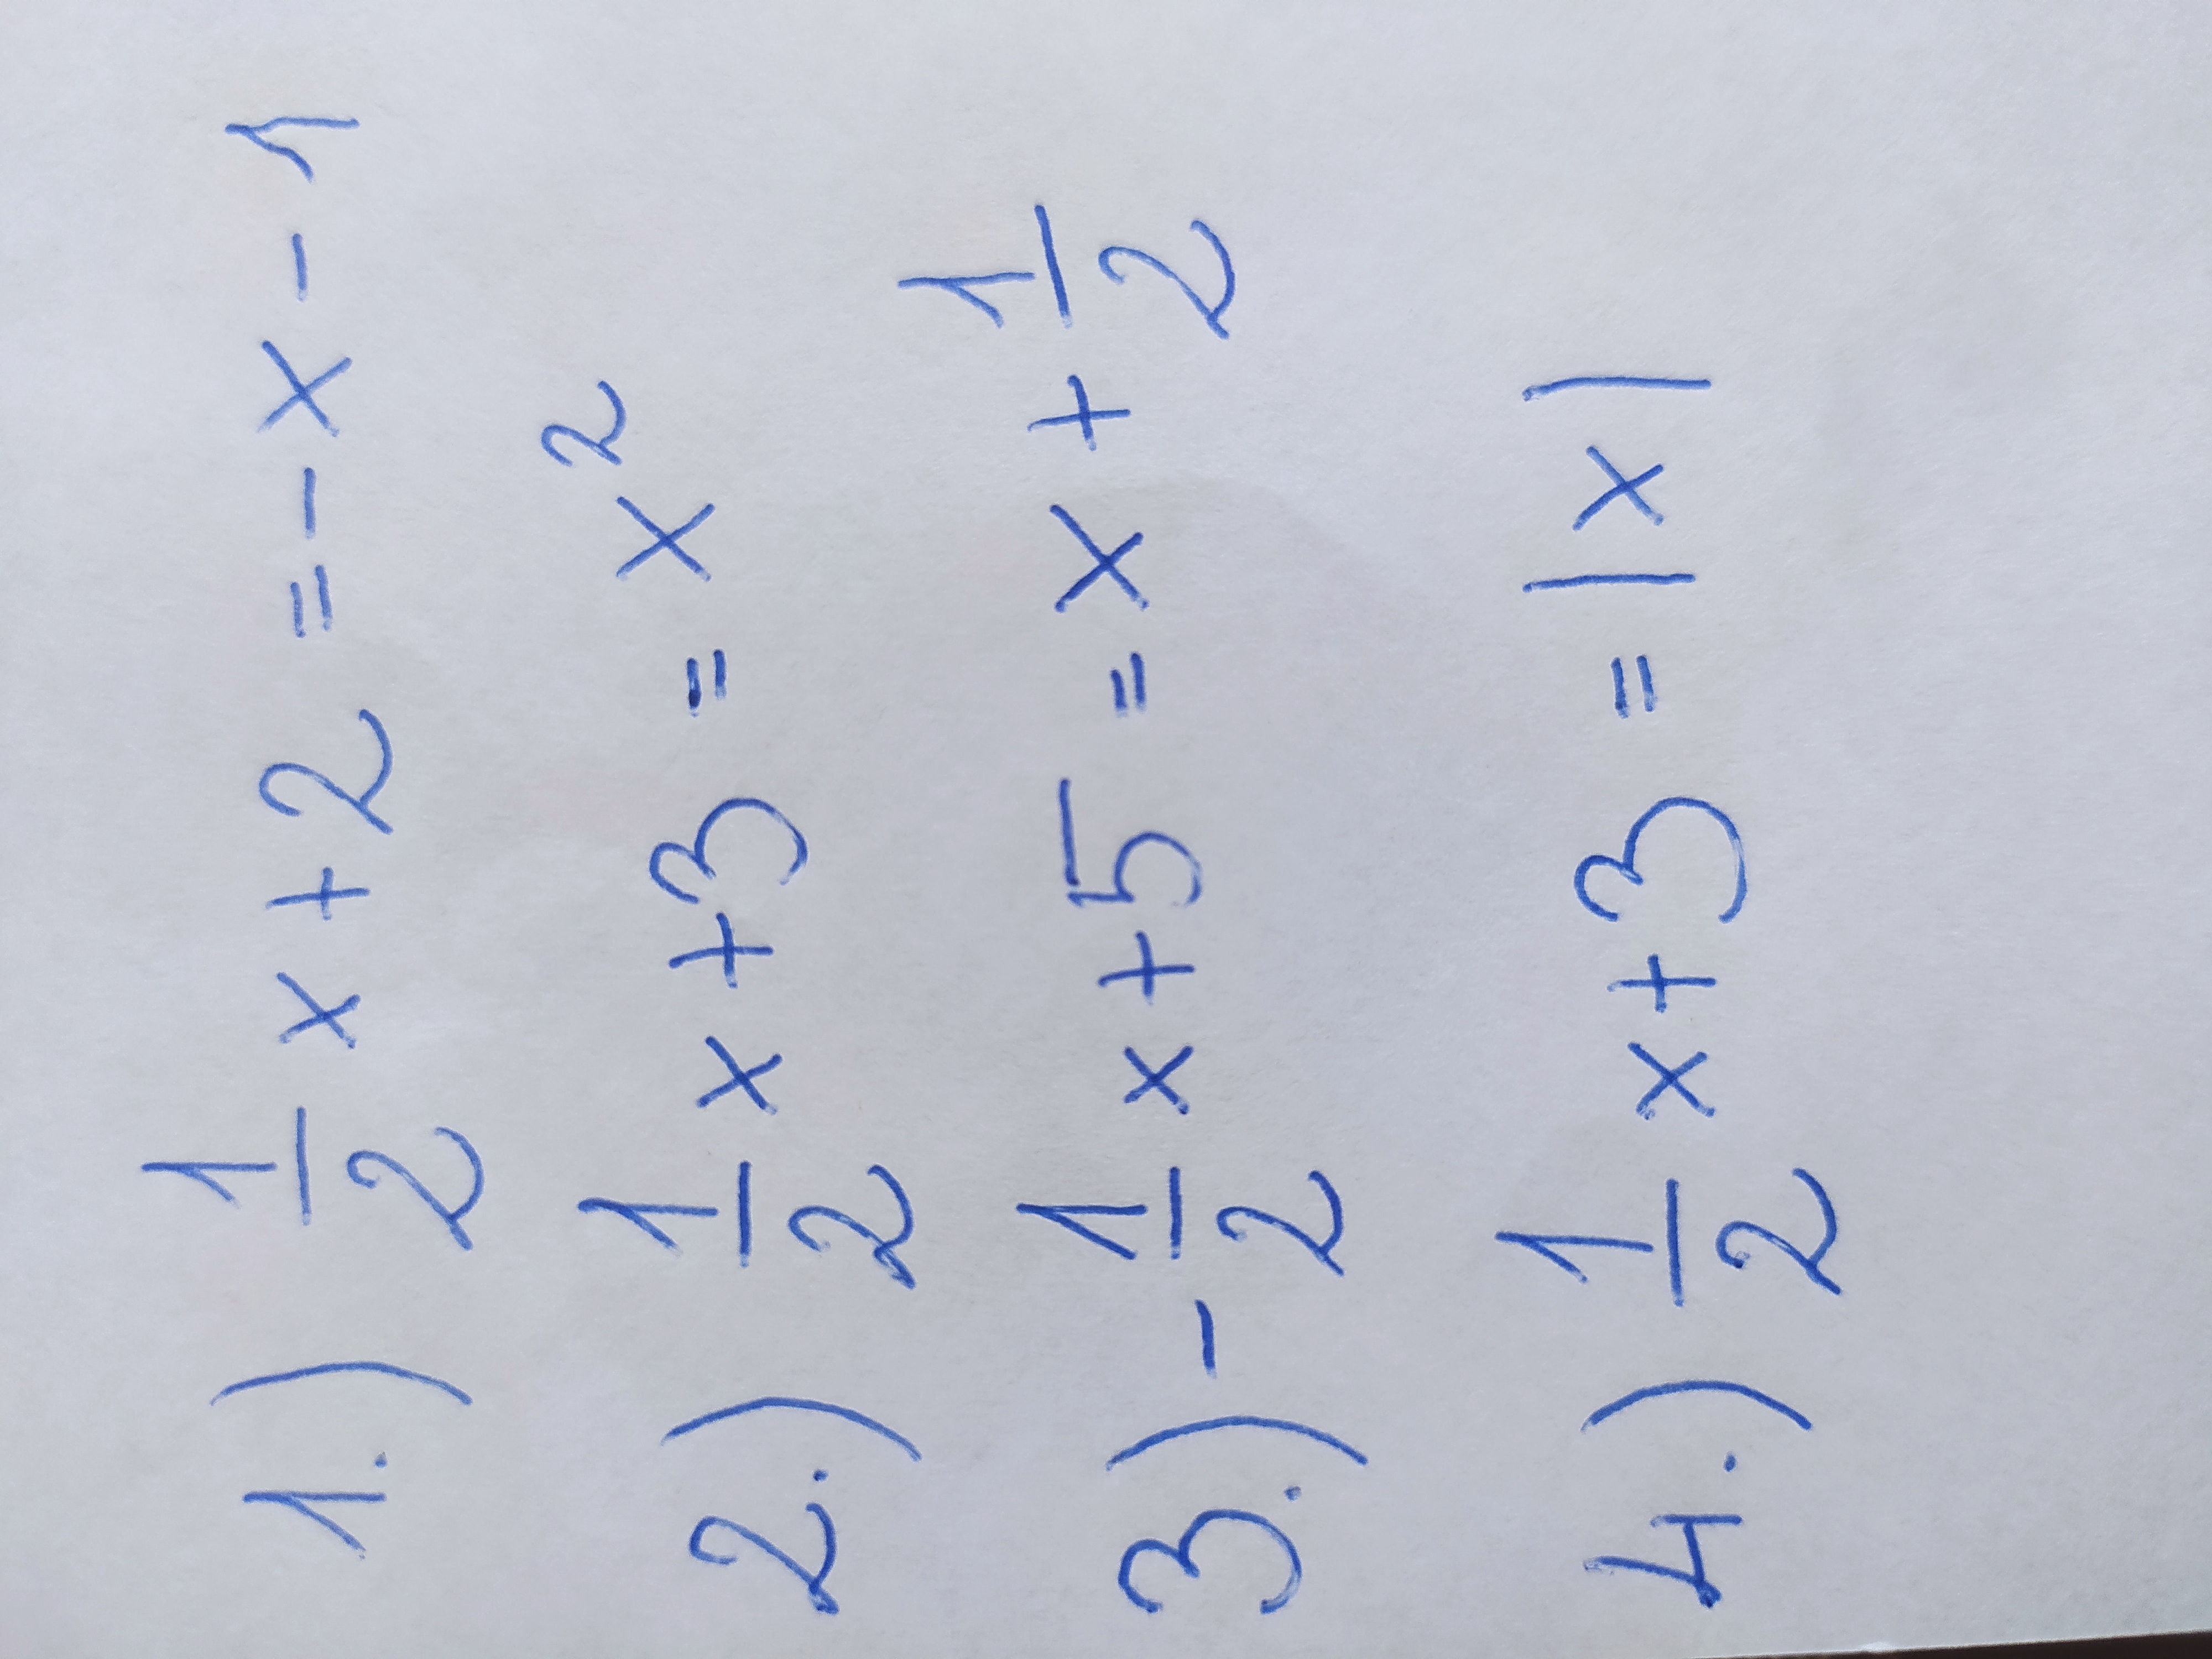 1.) 1/2 x + 2 = - x - 1
2.) 1/2 x + 3 = x²
3.) - 1/2 x + 5 = x + 1/2
4.) 1/2 x + 3 = |x|